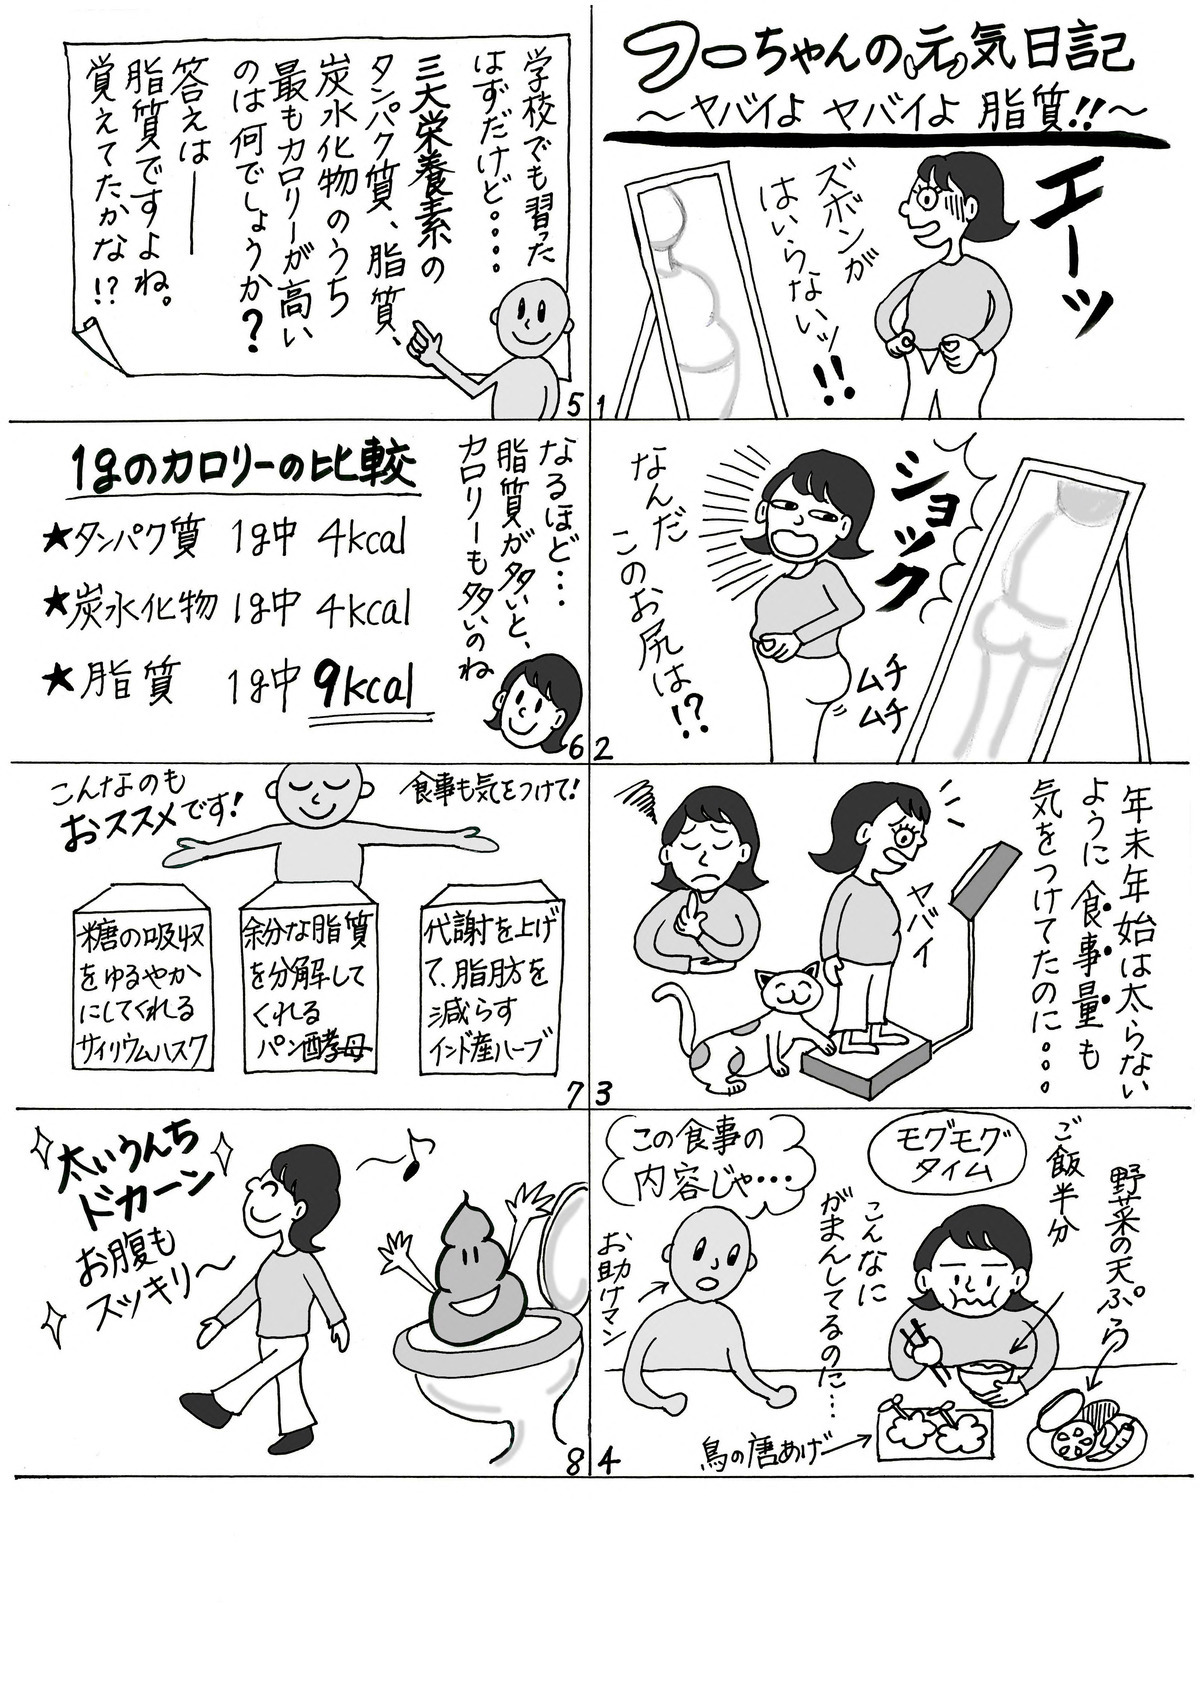 フーちゃんの元気日記
～ヤバイよ ヤバイよ 脂質!!～
エーッ
ズボンが
はいらないッ
!!
1
ショック
なんだ
このお尻は!?
ムチ
ムチ
2
年末年始は太らない
ように食事量も
気をつけてたのに…。
ヤバイ
3
野菜の天ぷら
ご飯半分
モグモグ
タイム
こんなに
がまんしてるのに…
この食事の
内容じゃ…
お助けマン
鳥の唐あげ
4
学校でも習った
はずだけど…。
三大栄養素の
タンパク質、脂質、
炭水化物のうち
最もカロリーが高い
のは何でしょうか?
答えは――
脂質ですよね。
覚えてたかな!?
5
なるほど…
脂質が多いと、
カロリーも多いのね
1gのカロリーの比較
★タンパク質 1g中 4kcal
★炭水化物 1g中 4kcal
★脂質 1g中 9kcal
6
食事も気をつけて!
こんなのも
おススメです!
糖の吸収
をゆるやか
にしてくれる
サイリウムハスク
余分な脂質
を分解して
くれる
パン酵母
代謝を上げ
て、脂肪を
減らす
インド産ハーブ
7
太いうんち
ドカーン
お腹も
スッキリ～
8